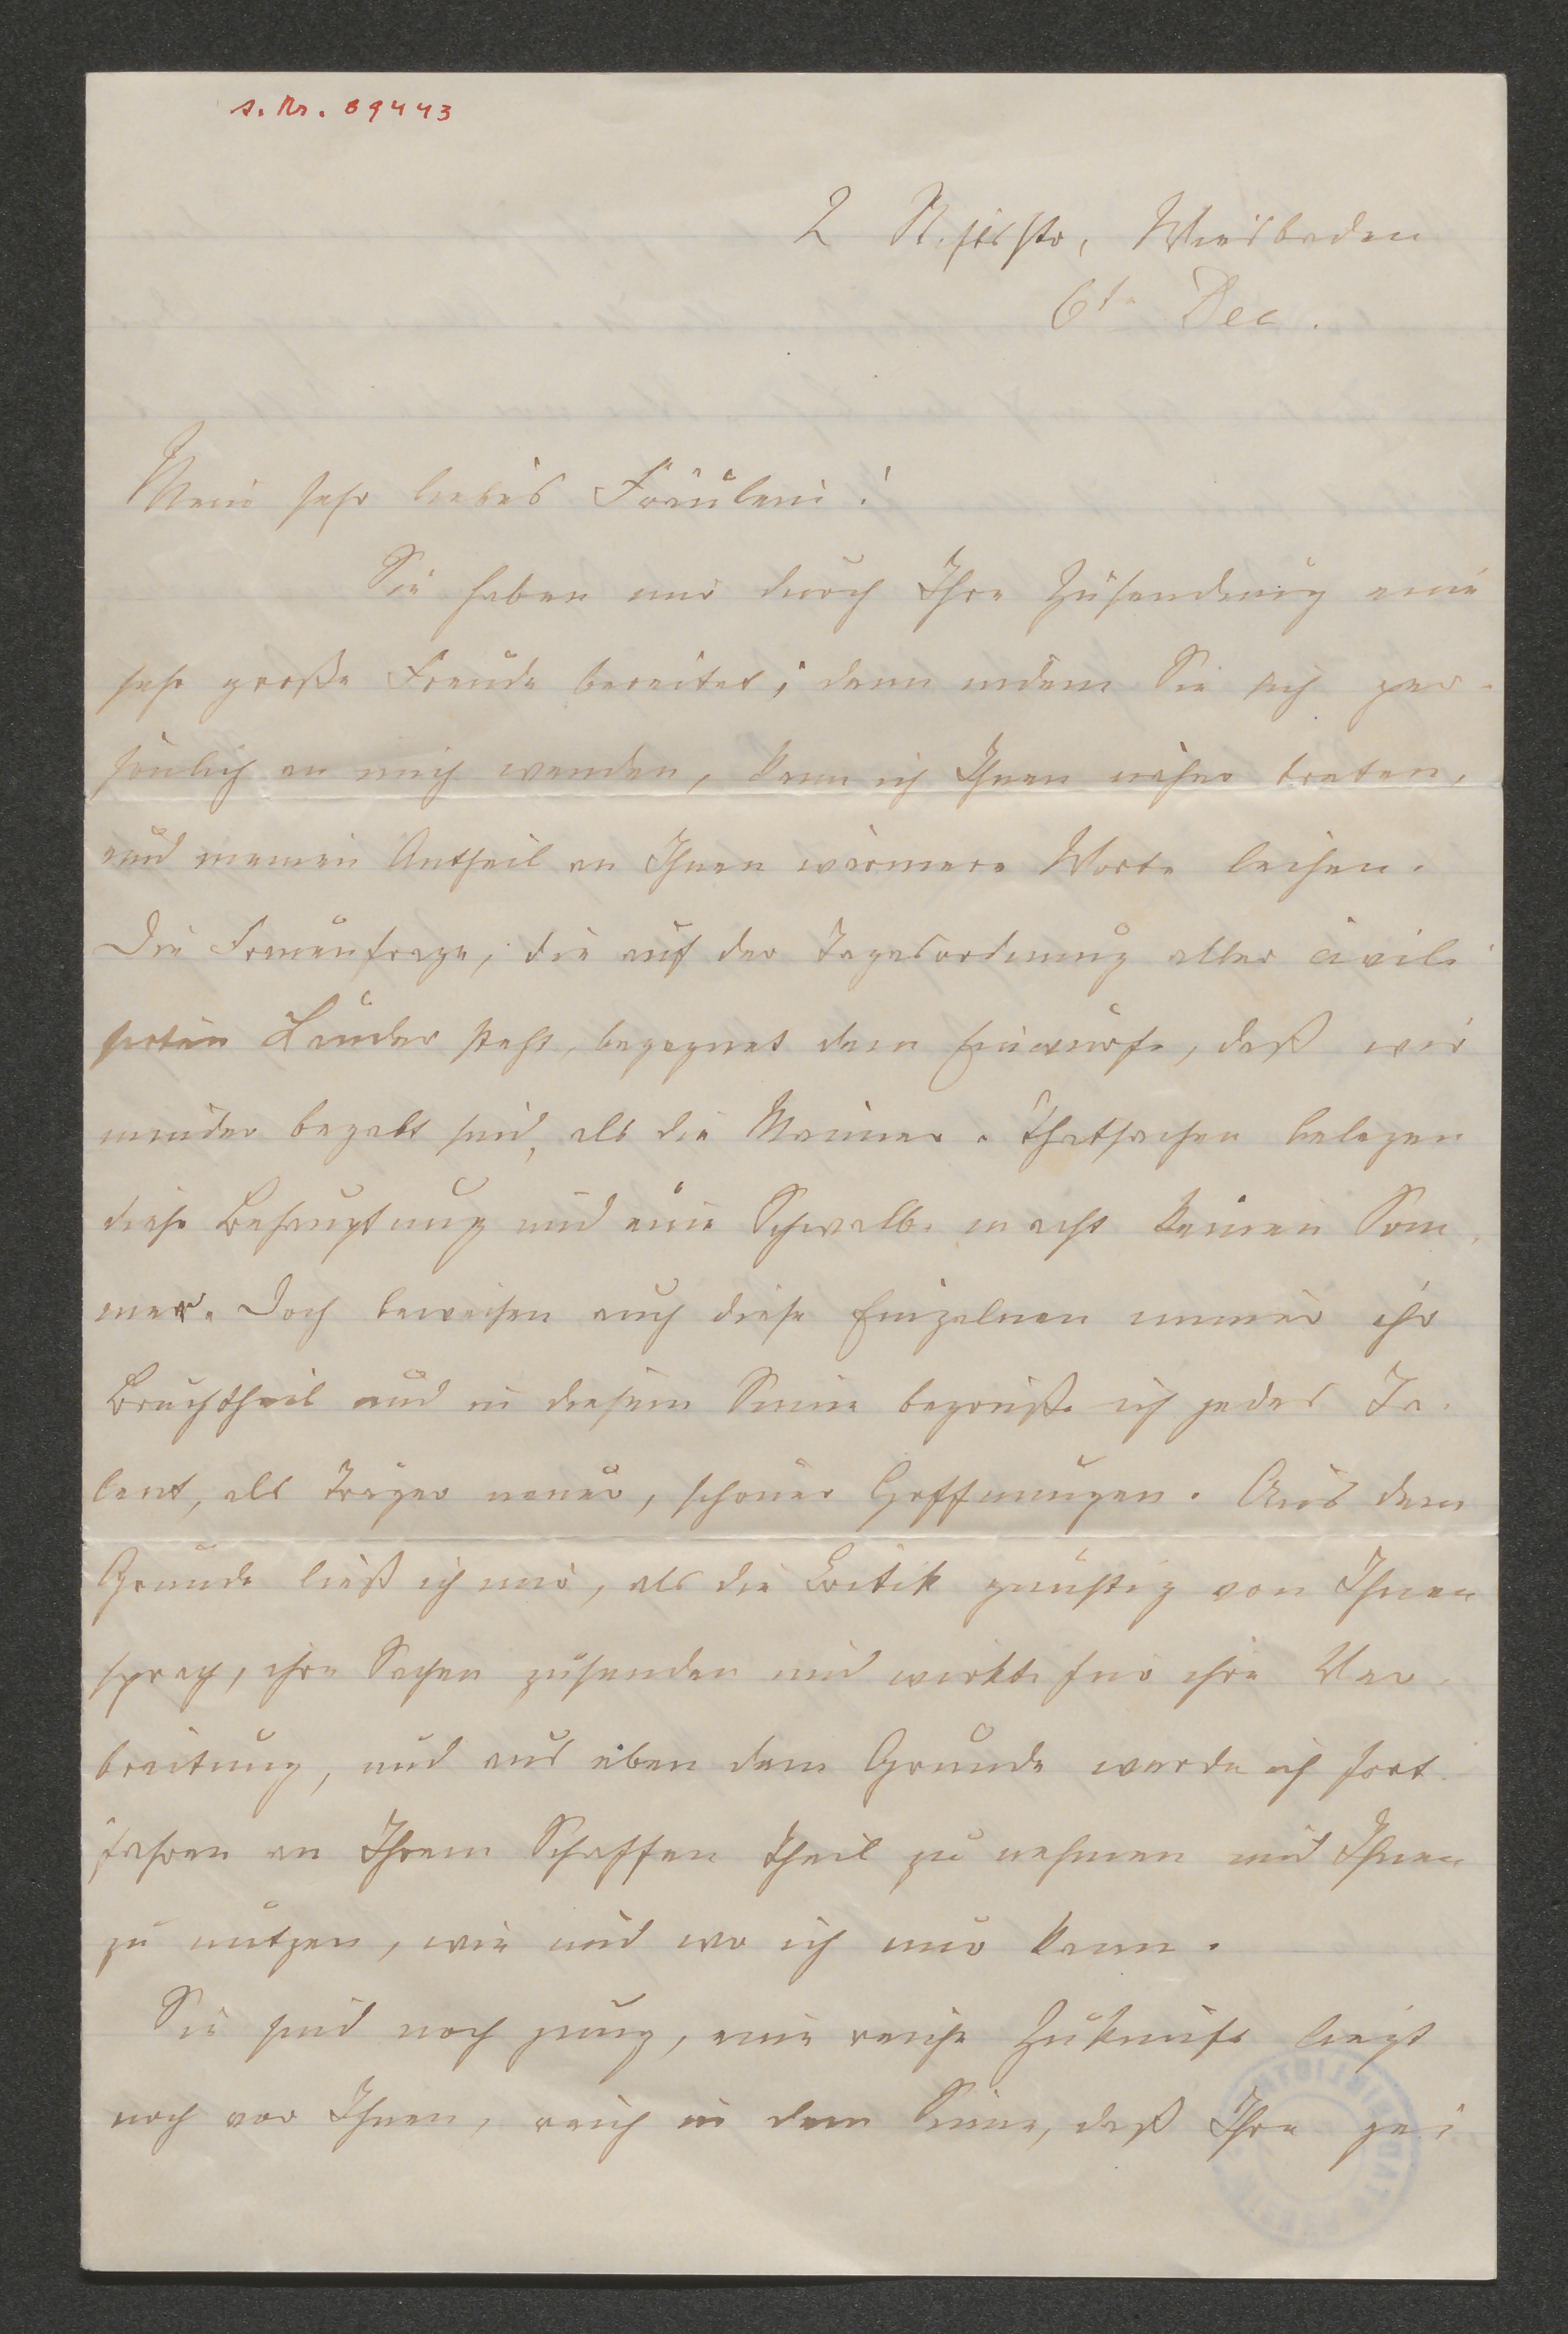 s. Nr. 89443
2 Wiesbaden
6te Dec.
Mein sehr liebes Fräulein!
Sie haben mir durch Ihre Zusendung eine
sehr große Freude bereitet; denn indem Sie sich per-
sönlich an mich wenden, kann ich Ihnen näher treten,
und meinen Antheil an Ihnen wärmere Worte leihen.
Die Frauenfrage, die auf der Tagesordnung aller civili-
sirten Länder steht, begegnet dem Einwurfe, daß wir
minder begabt sind, als die Männer. Thatsachen belegen
diese Behauptung und eine Schwalbe macht keinen Som-
mer. Doch beweisen auch diese Einzelnen immer ihr
Bruchtheil und in diesem Sinne begrüße ich jedes Ta-
lent, als Träger neuer, schöner Hoffnungen. Aus dem
Grunde ließ ich mir, als die Critik günstig von Ihnen
sprach, ihre Sachen zusenden und wirkte für ihre Ver-
breitung, und aus eben dem Grunde werde ich fort-
fahren an Ihrem Schaffen Theil zu nehmen und Ihnen
zu nützen, wie und wo ich nur kann.
Sie sind noch jung, eine reiche Zukunft liegt
noch vor Ihnen, reich in dem Sinne, daß Ihre gei-